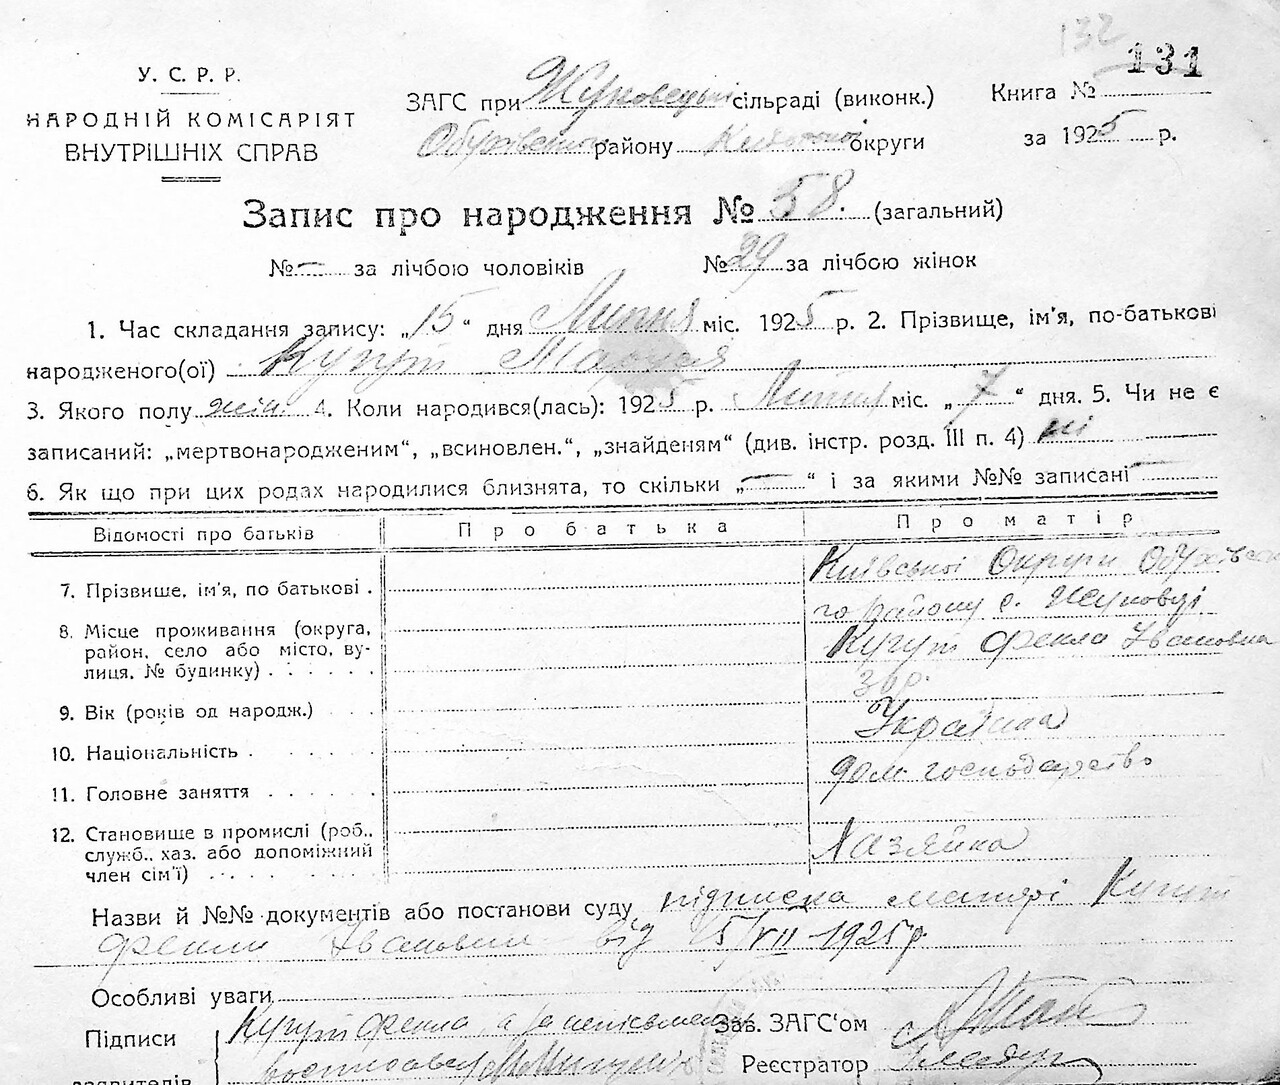 132
131
У. С. Р. Р.
НАРОДНІЙ КОМІСАРІЯТ
ВНУТРІШНІХ СПРАВ
ЗАГС при Жуковецькі сільраді (виконк.)
Обухівського району Київської округи
Книга №
за 1925 р.
Запис про народження № 58. (загальний)
№ — за лічбою чоловіків № 29 за лічбою жінок
1. Час складання запису: „15“ дня Липня міс. 1925 р. 2. Прізвище, ім'я, по-батькові
народженого(ої) Кугут
3. Якого полу жін. 4. Коли народився(лась): 1925 р. Липня міс. „7“ дня. 5. Чи не є
записаний: „мертвонародженим“, „всиновлен.“, „знайденям“ (див. інстр. розд. III п. 4) ні
6. Як що при цих родах народилися близнята, то скільки „—“ і за якими №№ записані —
Відомості про батьків Про батька Про матір
7. Прізвише, ім'я, по батькові . Київської Округи Обухівсько
го району с. Жуковці
8. Місце проживання (округа,
район, село або місто, ву-
лиця, № будинку) . . . . . .
Кугут Фекла Івановна
9. Вік (років од народж.) . . . 38р.
10. Національність . . . . . . Українка
11. Головне заняття . . . . . . дом. господарство
12. Становище в промислі (роб.,
служб., хаз. або допоміжний
член сім'ї) . . . . . . .
Хазяйка
Назви й №№ документів або постанови суду підписка матері Кугут
Фекли Івановни від 15/VII 1925р.
Особливі уваги
Підписи
заявителів
Кугут Фекла, а за неписьменну
Зав. ЗАГС'ом
Реєстратор